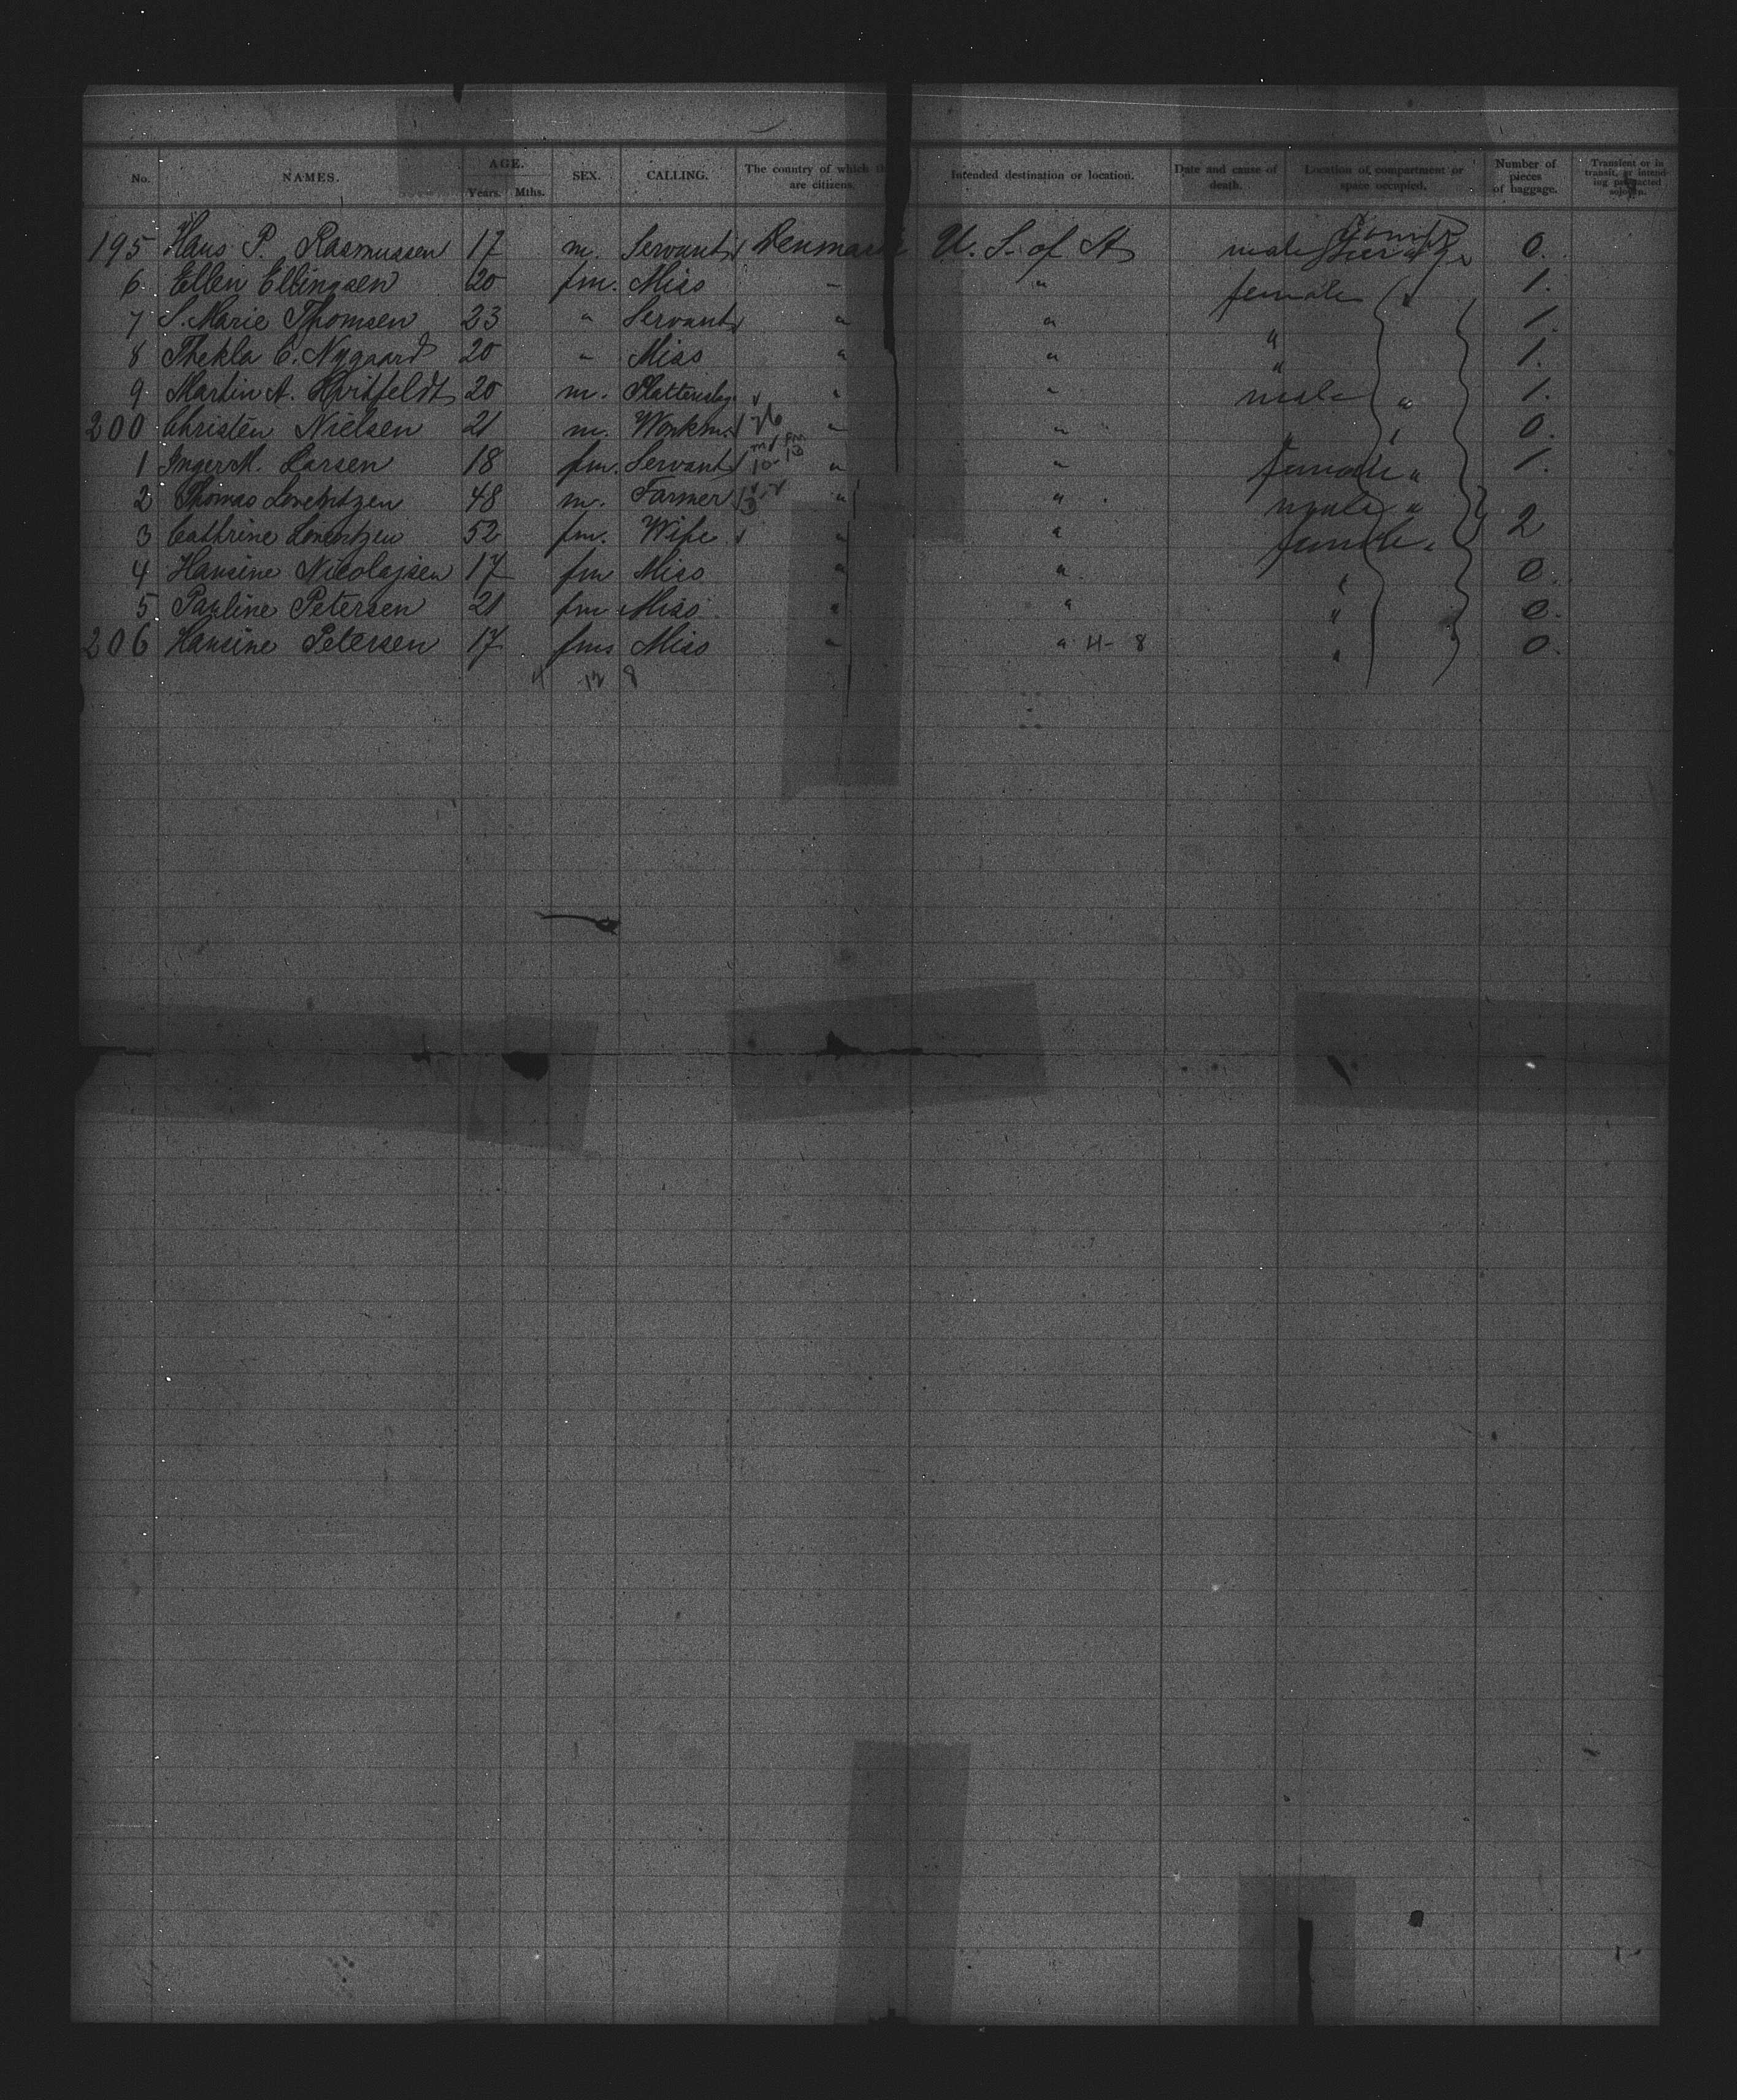 No. NAMES. AGE. Years. Mths. SEX. CALLING. The country of which th are citizens. Intended destination or location. Date and cause of death. Location of compartment or space occupied. Number of pieces of baggage. Transient or in transit, or intending protracted sojourn.
195 Hans P. Rasmussen 17 m. Servant Denmark U. S. of A male Steerage 0.
6 Ellen Ellingsen 20 fm. Miss " " female " 1.
7 S. Marie Thomsen 23 " Servant " " " 1.
8 Thekla C. Nygaard 20 " Miss " " " 1.
9. Martin A. Hvitfeldt 20 m. " " male " 1.
200 Christen Nielsen 21 m. Workm. " " " 0.
1 Inger M. Larsen 18 fm. Servant " " female " 1.
2 Thomas Lorentzen 48 m. Farmer " " male "
3 Cathrine Lorentzen 52 fm. Wife " " female " 2
4 Hansine Nicolajsen 17 fm Miss " " " 0.
5 Pauline Petersen 21 fm Miss " " " 0.
206 Hansine Petersen 17 fm Miss " " 4-8 " 0.
4 12 8